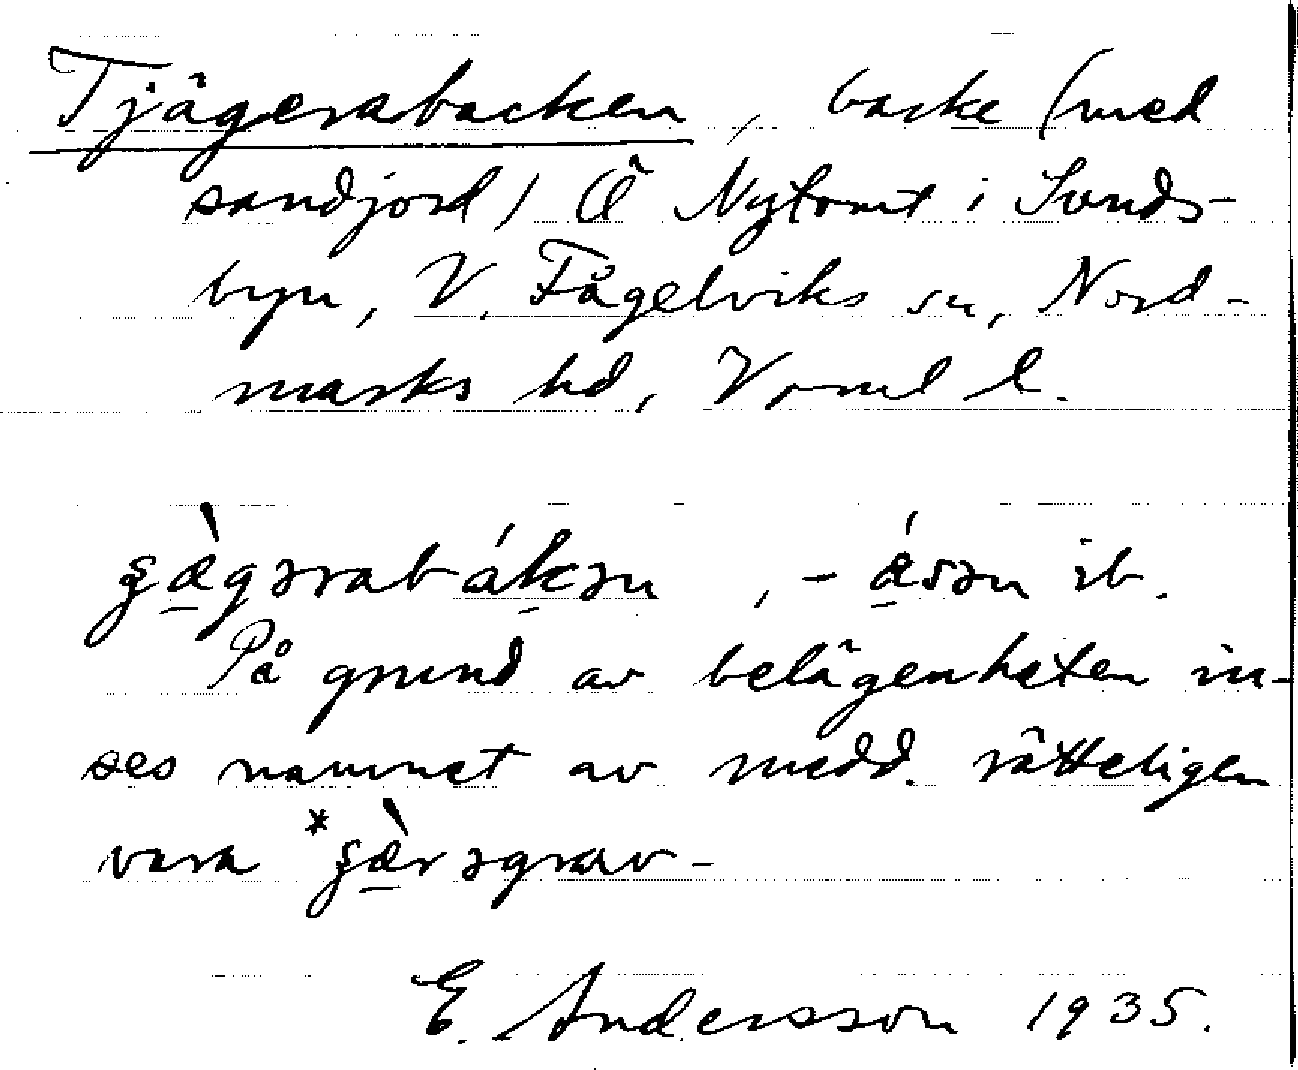 Tjägerabacken, backe (med
sandjord) Ö Nytomt i Sunds-
byn, V. Fågelviks sn, Nord-
marks hd, Vrml l.
ʂæ̀gərabákən, -ásən ib.
På grund av belägenheten in-
ses namnet av medd. rätteligen
vara *ʂæ̀rəgrav-
E. Andersson 1935.